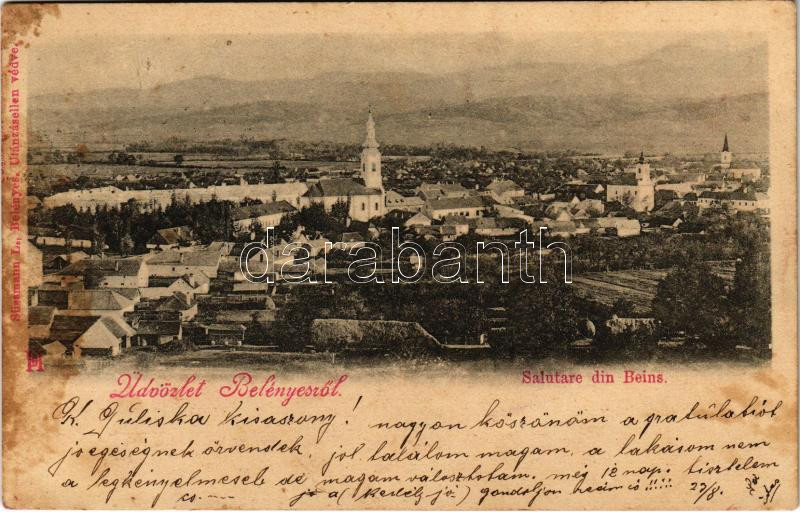 Süssmann L., Belényes. Utánzásellen védve.
darabanth
Üdvözlet Belényesről.
Salutare din Beins.
K. Juliska kisaszony! nagyon köszönöm a gratulatiót
jó egéségnek örvendek. jol találom magam, a lakásom nem
a legkényelmeseb de magam választotam. még 12 nap. tisztelem
jó a (kedély jó) gondoljon 23/8.